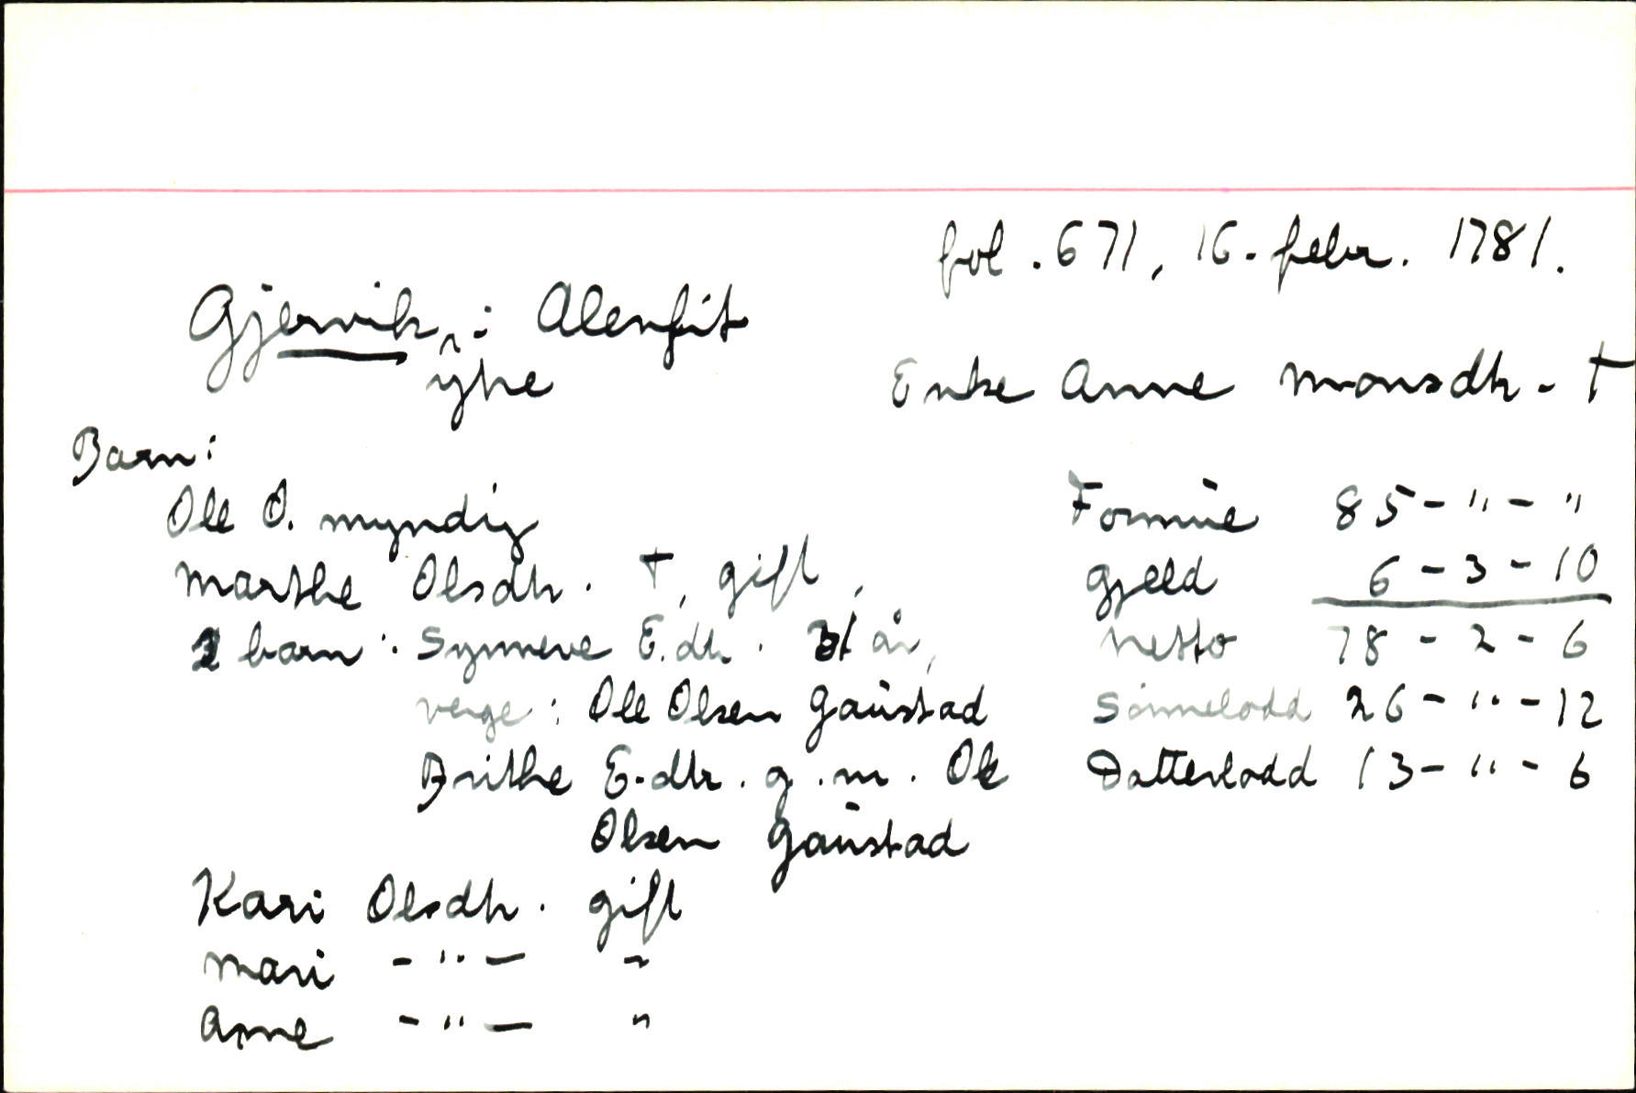 fol. 671, 16. febr. 1781.
Gjervik, i Alenfit
yhe
Enke Anne Monsdtr - †
Barn:
Ole O. myndig
Formue 85 - " - "
Marthe Olsdtr. †, gift,
Gjeld 6 - 3 - 10
2 barn: Synneve E.dtr. år,
Netto 78 - 2 - 6
verge: Ole Olsen Gaustad
Sönnelodd 26 - " - 12
Brithe E-dtr. g.m. Ole
Datterlodd 13 - " - 6
Olsen Gaustad
Kari Olsdtr. gift
Mari - " - "
Anne - " - "